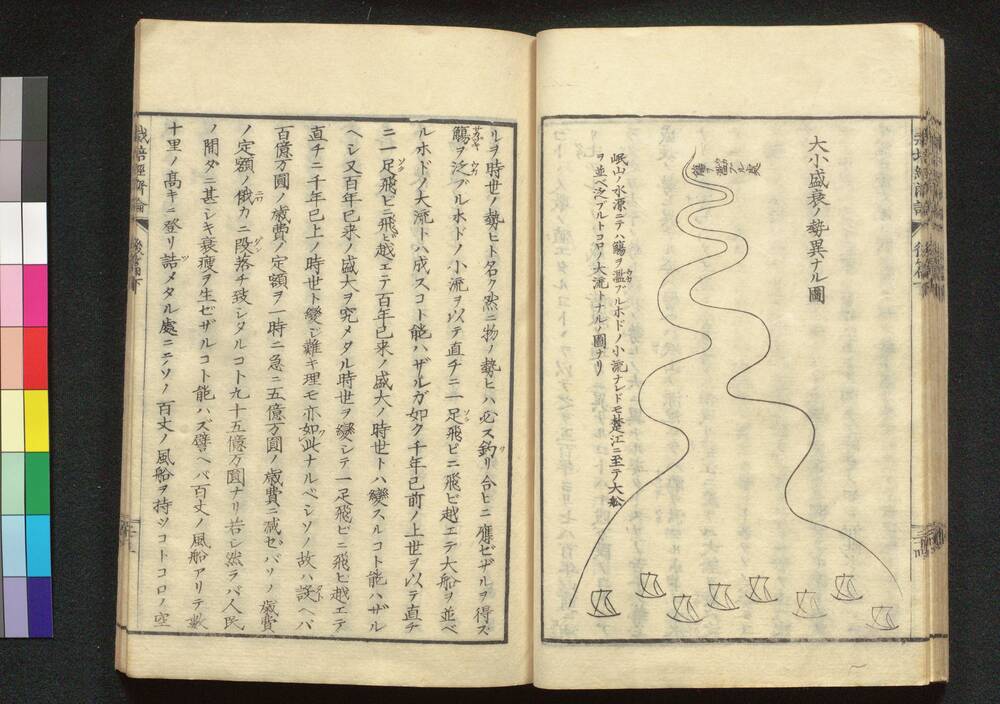 大小盛衰ノ勢異ナル圖
岷山ノ水源ニテハ觴ヲ濫ブルホドノ小流ナレドモ楚江ニ至テ大舩
ヲ並ベ泛ブルトコロノ大流トナルノ圖ナリ
ルヲ時世ノ勢ヒト名ク然ニ物ノ勢ヒハ必ス釣リ合ヒニ應ゼザルヲ得ズ
觴ヲ泛ブル水ドノ小流ヲ以テ直チニ一足飛ビニ飛ビ越エテ大船ヲ並ベ
ルホドノ大流トハ成スコト能ハザルガ如ク千年已前ノ上世ヲ以テ直チ
ニ一足飛ビニ飛ビ越エテ百年已来ノ盛大ノ時世トハ變スルコト能ハザル
ヘシ又百年已来ノ盛大ヲ究メタル時世ヲ變シテ一足飛ビニ飛ビ越エテ
直チニ千年已上ノ時世ト變シ難キ理モ亦如此ナルベシソノ故ハ設ヘバ
百億万圓ノ歳費ノ定額ヲ一時ニ急ニ五億万圓ノ歳費ニ減ゼバソノ歳費
ノ定額ノ俄カニ段落チ致シタルコト九十五億万圓ナリ若シ然ラバ人民
ノ間ダニ甚シキ衰瘦ヲ生ゼザルコト能ハズ譬ヘバ百丈ノ風船アリテ數
十里ノ高キニ登リ詰メタル處ニニソノ百丈ノ風船ヲ持ツコトコロノ空
栽培經濟論
後篇下